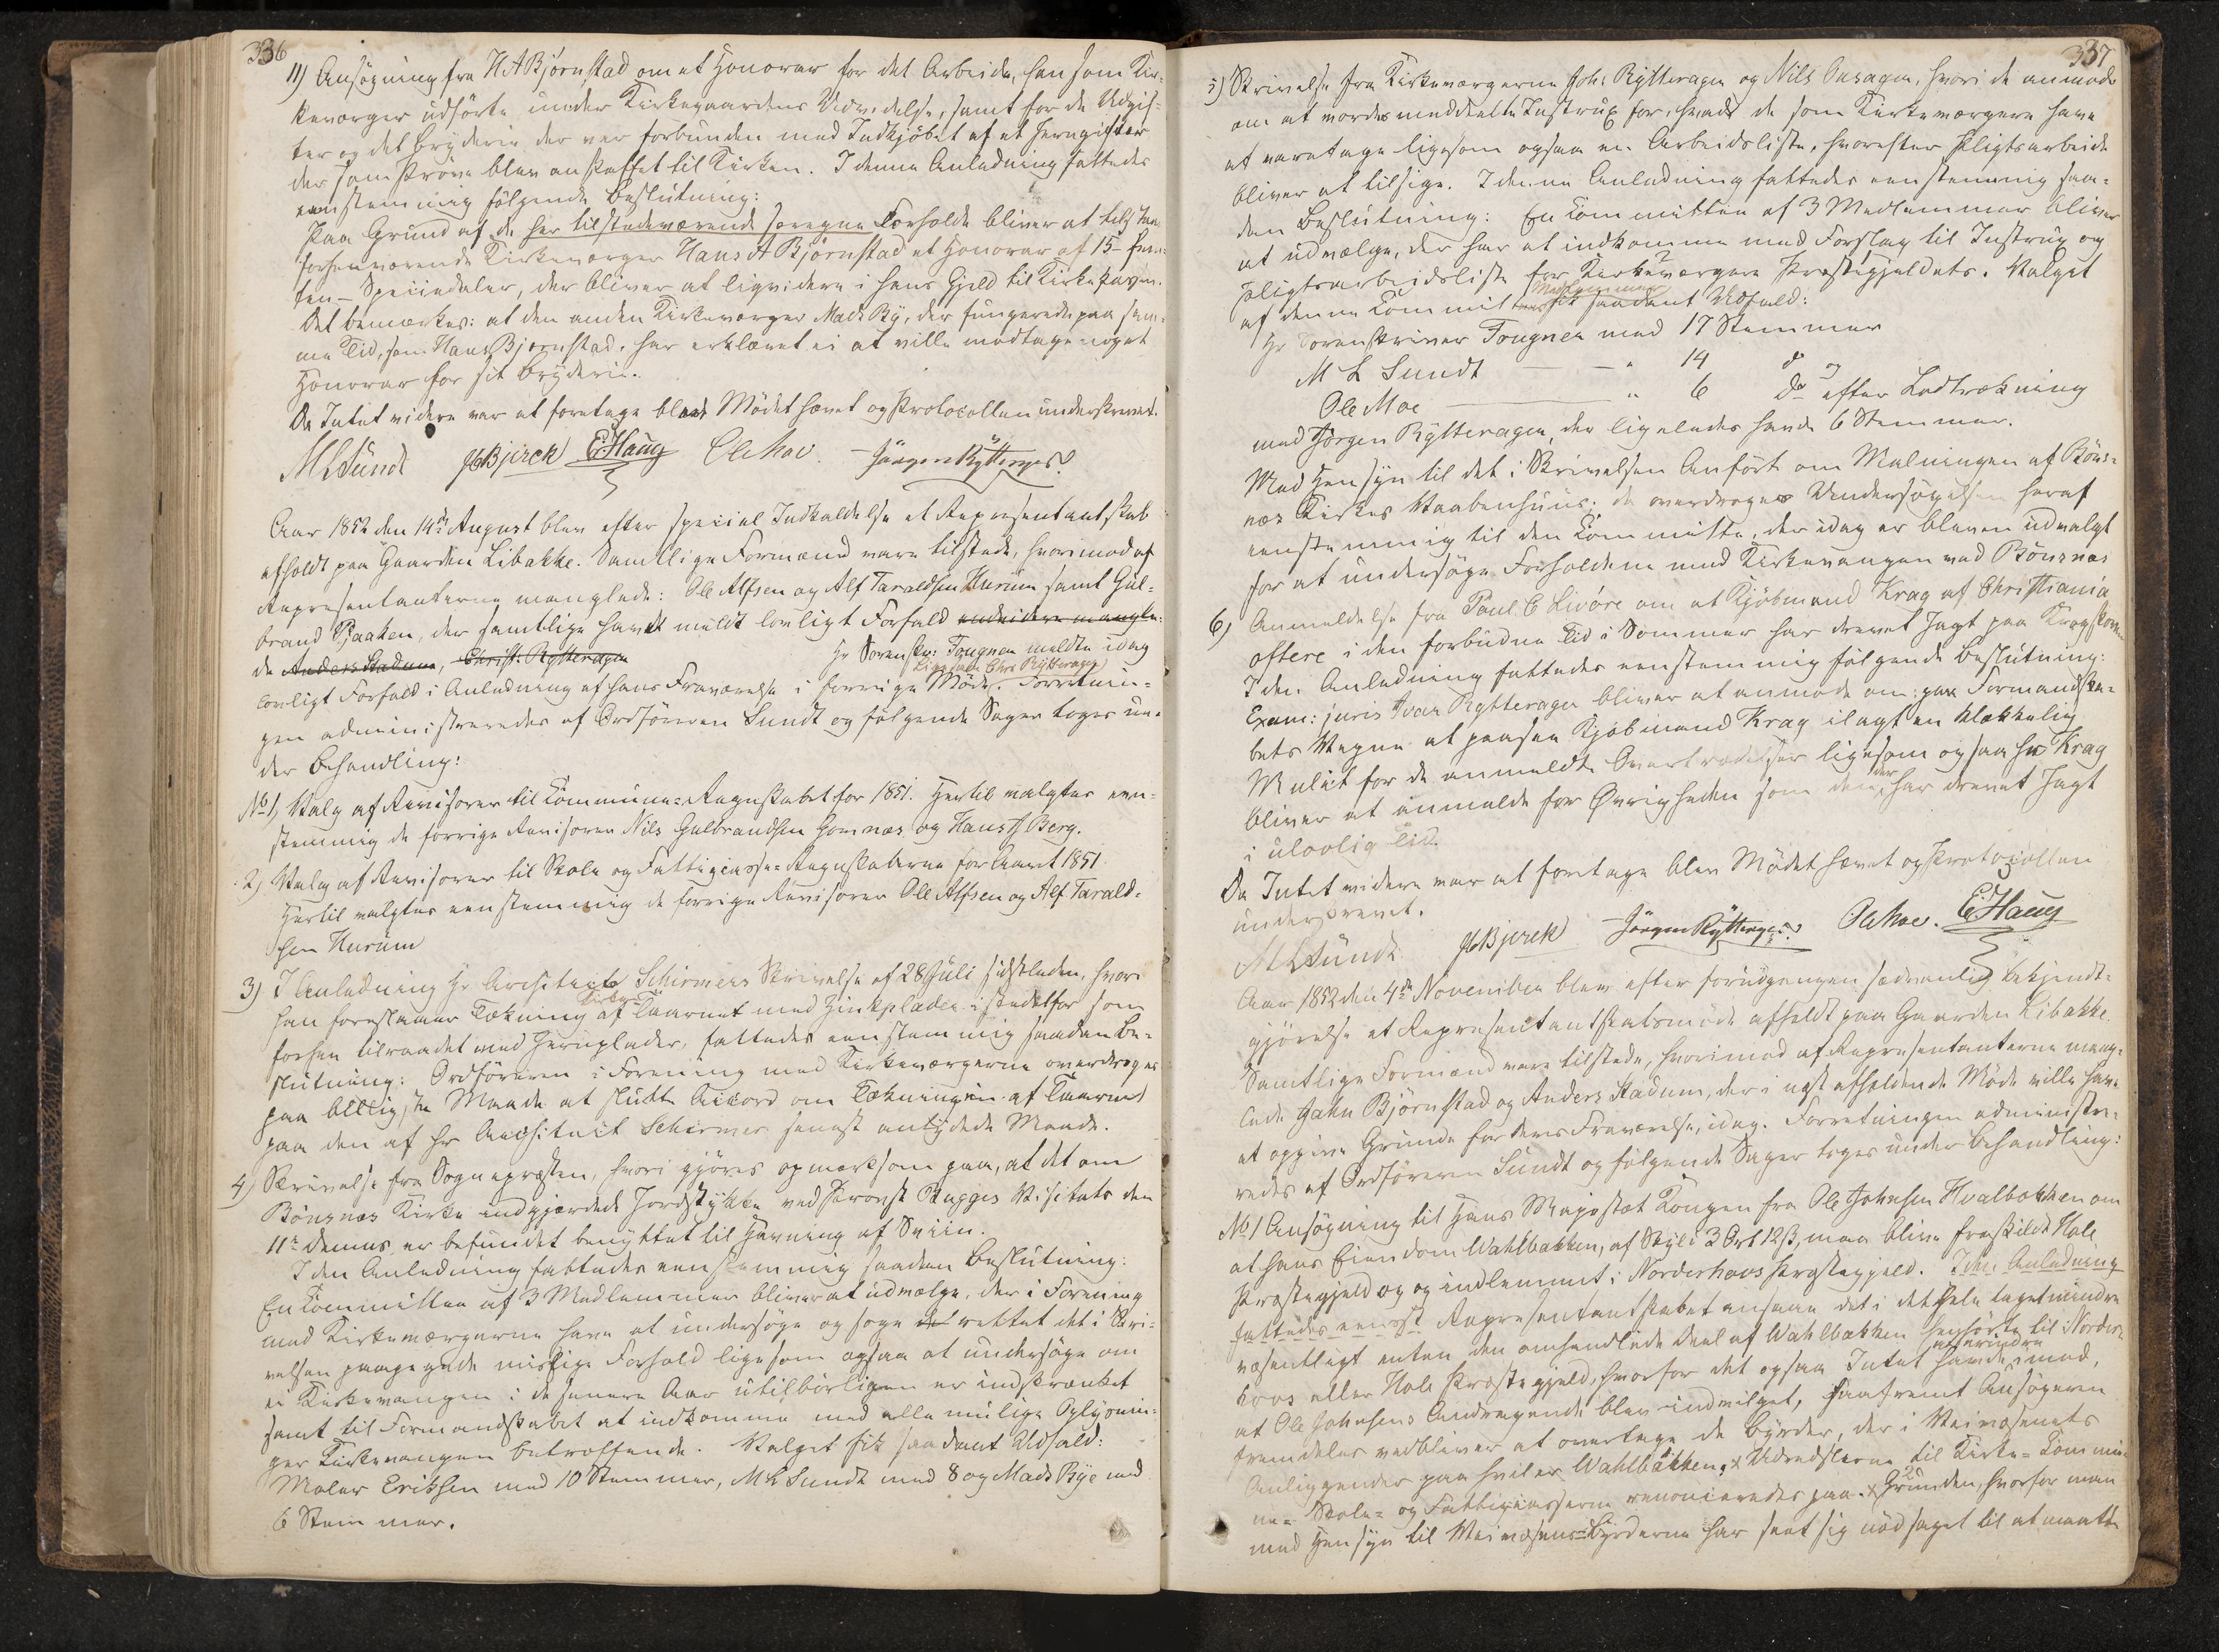 336
11) Ansøgning fra H A Bjørnstad om et Honorar for det Arbeide, han som Kir-
keværger udførte under Kirkegaardens Udvidelse, samt for de Udgif-
ter og det Bryderie der var forbunden med Indkjøbet af et Jerngitter
der som Prøve blev anskaffet til Kirken. I denne Anledning fattedes
eenstemmig følgende Beslutning:
Paa Grund af de her tilstedeværende særegne Forholde bliver at tilstaae
forhenværende Kirkeværger Hans A Bjørnstad et Honorar af 15 – fem-
ten – Speciedaler, der bliver at liqvidere i hans Gjeld til Kirkekassen.
Det bemærkes: at den anden Kirkeværger Mads Ry, der fungerede paa sam-
me Tid, som Hans Bjørnstad, har erklæret ei at ville modtage noget
Honorar for sit Bryderie.
Da Intet videre var at foretage blev Mødet hævet og Protocollen underskrevet.
M L Sundt Bjerck E Haug Ole Moe. Jørgen Rytterager.
Aar 1852 den 14de August blev efter speciel Indkaldelse et Repræsentantskab
afholdt paa Gaarden Libakke. Samtlige Formænd vare tilstede, hvorimod af
Repræsentanterne manglede: Ole Alfsen og Alf Taraldsen Hurum samt Gul-
brand Paaken, der samtlige havde meldt lovligt Forfald endvidere mangle-
de Anders Stadum, Christ: Rytteragen Hr Sorenskr: Tougner meldte idag
Ligesaa Chr: Rytteragen
lovligt Forfald i Anledning af hans Fraværelse i forrige Møde. Forretnin-
gen administreredes af Ordføreren Sundt og følgende Sager toges un-
der Behandling:
No 1, Valg af Revisorer til Commune-Regnskabet for 1851. Hertil valgtes een-
stemmig de forrige Revisorer Nils Gulbrandsen Gomnæs og Hans J Berg.
2) Valg af Revisorer til Skole og Fattigcasse-Regnskaberne for Aaret 1851
Hertil valgtes eenstemmig de forrige Revisorer Ole Alfsen og Alf Tarald-
sen Hurum
3) I Anledning Hr Architect Schirmers Skrivelse af 28 Juli sidstleden, hvori
han foreslaaer Tækning af Taarnet med Zinkplader istedetfor som
forhen tilraadet med Jernplader, fattedes eenstemmig saadan Be-
slutning: Ordføreren i Forening med Kirkeværgerne overdrages
paa billigste Maade at slutte Accord om Tækningen af Taarnet
paa den af Hr Architect Schirmer senest antydede Maade.
4) Skrivelse fra Sognepræsten, hvori gjøres opmærksom paa, at det om
Bønsnæs Kirke indgjærdede Jordstykke ved Provst Rugges Visitats den
11te dennes er befundet benyttet til Havning af Sviin.
I den Anledning fattedes eenstemmig saadan Beslutning:
En Committee af 3 Medlemmer bliver at udvælge, der i Forening
med Kirkeværgerne have at undersøge og søge rettet det i Skri-
velsen paapegede mislige Forhold ligesom ogsaa at undersøge om
ei Kirkevangen i de senere Aar utilbørligen er indskrænket
samt til Formandskabet at indkomme med alle mulige Oplysnin-
ger Kirkevangen betræffende. Valget fik saadant Udfald:
Maler Eriksen med 10 Stemmer, M L Sundt med 8 og Mads Rye med
6 Stemmer.
337
5) Skrivelse fra Kirkeværgerne Joh: Rytteragen og Nils Onsagen, hvori de anmode
om at vorde meddeelte Instrux for, hvad de som Kirkeværgere have
at varetage ligesom ogsaa en Arbeidsliste, hvorefter Pligtsarbeide
bliver at tilsige. I denne Anledning fattedes eenstemmig saa-
dan Beslutning: En Committee af 3 Medlemmer bliver
at udvælge, der har at indkomme med Forslag til Instrux og
Pligtsarbeidsliste for Kirkeværgere Præstegjeldets. Valget
Medlemmer
af denne Commit fik saadant Udfald:
Hr Sorenskriver Tougner med 17 Stemmer
M L Sundt — " 14 do og
Ole Moe — " 6 do efter Lodtrækning
med Jørgen Rytteragen, der ligeledes havde 6 Stemmer.
Med Hensyn til det i Skrivelsen Anførte om Malningen af Bøns-
næs Kirkes Vaabenhuus, da overdroges Undersøgelsen heraf
eenstemmig til den Committe, der idag er bleven udvalgt
for at undersøge Forholdene med Kirkevangen ved Bønsnæs
6) Anmeldelse fra Paul C Livøre om at Kjøbmand Krag af Christiania
oftere i den forbudne Tid i Sommer har drevet Jagt paa Krogskoven
I den Anledning fattedes eenstemmig følgende Beslutning:
Exam: juris Ivar Rytteragen bliver at anmode om: paa Formandska-
bets Vegne at paasee Kjøbmand Krag ilagt en klækkelig
Mulct for de anmeldte Overtrædelser ligesom ogsaa Hr Krag
bliver at anmelde for Øvrigheden som den, der har drevet Jagt
i ulovlig Tid.
Da Intet videre var at foretage blev Mødet hævet og Protocollen
underskrevet.
M L Sundt Bjerck Jørgen Rytterager. Ole Moe. E Haug
Aar 1852 den 4de November blev efter forudgangen sædvanlig Bekjendt-
gjørelse et Repræsentantskabsmøde afholdt paa Gaarden Libakke.
Samtlige Formænd vare tilstede, hvorimod af Repræsentanterne mang-
lede Gahn Bjørnstad og Anders Stadum, der i næst afholdende Møde ville have
at opgive Grunde for deres Fraværelse, idag. Forretningen administre-
redes af Ordføreren Sundt og følgende Sager toges under Behandling:
No 1 Ansøgning til Hans Majestæt Kongen fra Ole Johnsen Hvalbakken om
at hans Eiendom Wahlbakken, af Skyld 3 Ort 12 ß, maa blive fraskildt Hole
Præstegjeld og og indlemmet i Norderhovs Præstegjeld. I den Anledning
fattedes eenst Repræsentantskabet ansaae det i det Hele taget mindre
væsentligt enten den omhandlede Deel af Wahlbakken henhørte til Norder-
hovs eller Hole Præstegjeld, hvorfor det ogsaa Intet havde at erindre imod,
at Ole Johnsens Andragende blev indvilget, saafremt Ansøgeren
fremdeles vedbliver at overtage de Byrder, der i Veivæsenets
Anliggender paahviler Wahlbakken, x Udredslerne til Kirke- Commu-
ne- Skole- og Fattigcasserne renonceredes paa. x Grunden, hvorfor man
med Hensyn til Veivæsens-Byrderne har seet sig nødsaget til at maatte